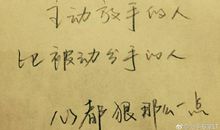 主动放手的人
比被动分手的人
心都狠那么一点